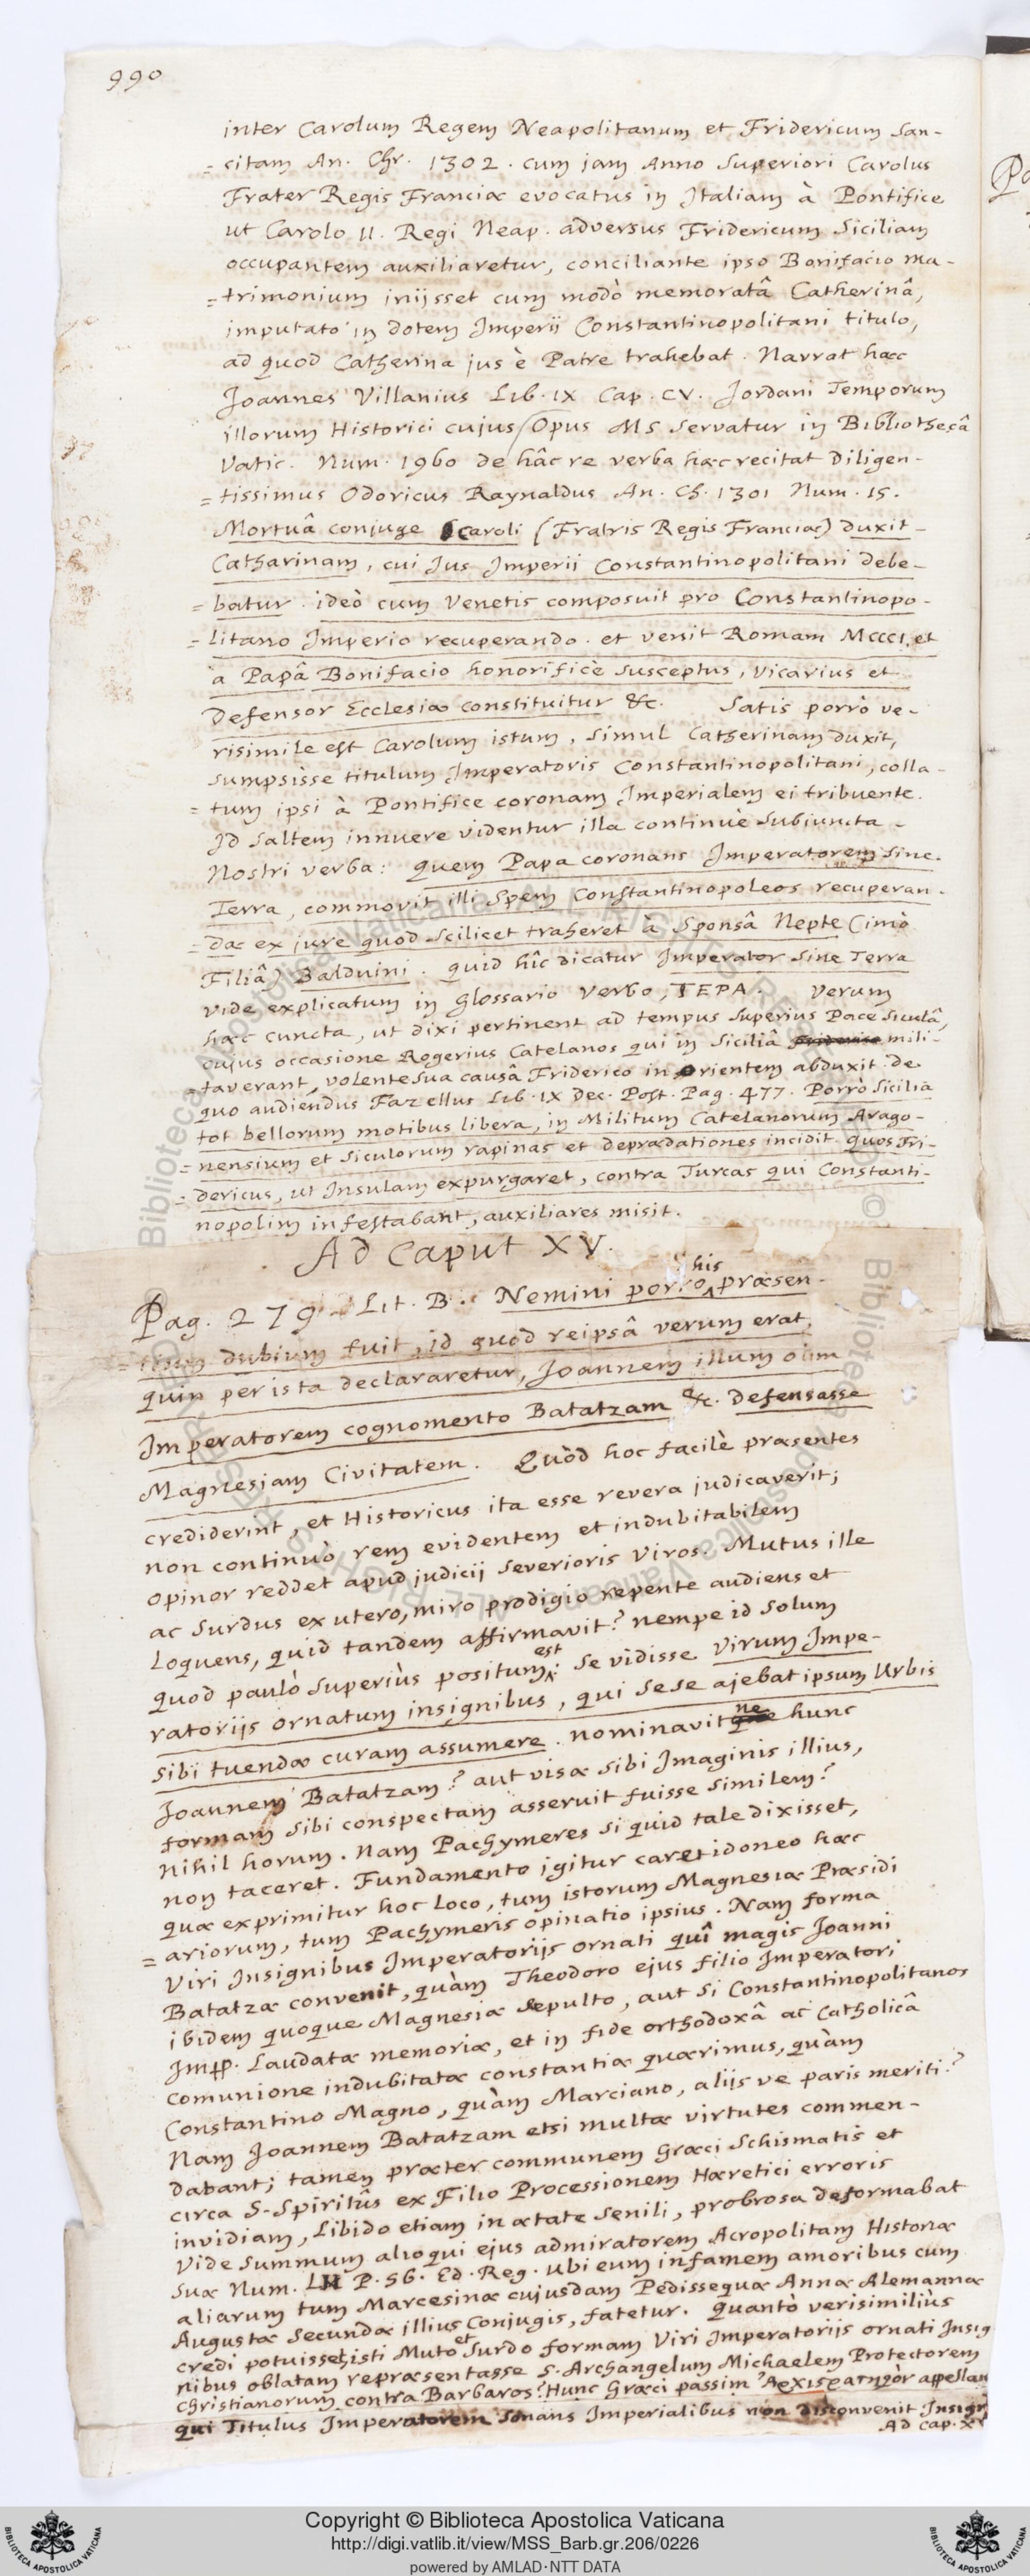 990
inter Carolum Regem Neapolitanum et Fridericum San-
=citam An. Chr. 1302. cum jam Anno Superiori Carolus
Frater Regis Franciæ evocatus in Italiam à Pontifice
ut Carolo II. Regi Neap. adversus Fridericum Siciliam
occupantem auxiliaretur, conciliante ipso Bonifacio ma-
=trimonium inijsset cum modò memoratâ Catherinâ,
imputato in dotem Imperii Constantinopolitani titulo,
ad quod Catherina jus è Patre trahebat. Narrat hæc
Joannes Villanius Lib. IX Cap. CV. Jordani Temporum
illorum Historici cujus Opus MS servatur in Bibliothecâ
Vatic. Num. 1960 de hâc re verba hæc recitat Diligen-
=tissimus Odoricus Raynaldus An. Ch. 1301 Num. 15.
Mortuâ conjuge Caroli (Fratris Regis Franciæ) duxit
Catharinam, cui Jus Imperii Constantinopolitani debe-
=batur. ideò cum Venetis composuit pro Constantinopo-
=litano Imperio recuperando. et venit Romam MCCCI. et
à Papâ Bonifacio honorificè susceptus, Vicarius et
Defensor Ecclesiæ constituitur &c. Satis porrò ve-
risimile est Carolum istum, simul Catherinam duxit,
sumpsisse titulum Imperatoris Constantinopolitani, colla-
=tum ipsi à Pontifice coronam Imperialem ei tribuente.
Id saltem innuere videntur illa continuè subiuncta
Nostri verba: quem Papa coronans Imperatorem sine
Terra, commovit illi spem Constantinopoleos recuperan-
=dæ ex jure quod scilicet traheret à Sponsâ Nepte (imò
Filiâ) Balduini. quid hîc dicatur Imperator sine Terra
vide explicatum in Glossario verbo, ΤΕΡΑ. Verum
hæc cuncta, ut dixi pertinent ad tempus superius Pace Siculâ,
cujus occasione Rogerius Catelanos qui in Siciliâ mili-
=taverant, volente sua causâ Friderico in Orientem abduxit. de
quo audiendus Fazellus Lib. IX Dec. Post. Pag. 477. Porrò Sicilia
tot bellorum motibus libera, in Militum Catelanorum Arago-
=nensium et Siculorum rapinas et deprædationes incidit. quos Fri-
=dericus, ut Insulam expurgaret, contra Turcas qui Constanti-
nopolim infestabant, auxiliares misit.
Ad Caput XV.
Pag. 279. Lit. B. Nemini porrò his præsen-
=tium dubium fuit, id quod reipsâ verum erat,
quin per ista declararetur, Joannem illum olim
Imperatorem cognomento Batatzam &c. defensasse
Magnesiam Civitatem. Quòd hoc facilè præsentes
crediderint, et Historicus ita esse revera judicaverit;
non continuò rem evidentem et indubitabilem
opinor reddet apud judicij severioris Viros. Mutus ille
ac surdus ex utero, miro prodigio repente audiens et
Loquens, quid tandem affirmavit? nempe id solum
quod paulò superiùs positum est: se vidisse Virum Impe-
ratorijs ornatum insignibus, qui sese ajebat ipsum Urbis
sibi tuendæ curam assumere. nominavitne hunc
Joannem Batatzam? aut visæ sibi Imaginis illius,
formam sibi conspectam asseruit fuisse similem?
Nihil horum. Nam Pachymeres si quid tale dixisset,
non taceret. Fundamento igitur caret idoneo hæc
quæ exprimitur hoc loco, tum istorum Magnesiæ Præsidi
=ariorum, tum Pachymeris opinatio ipsius. Nam forma
Viri Insignibus Imperatorijs ornati quî magis Joanni
Batatzæ convenit, quàm Theodoro ejus filio Imperatori
ibidem quoque Magnesiæ sepulto, aut si Constantinopolitanos
Impp. Laudatæ memoriæ, et in fide orthodoxâ ac Catholicâ
Comunione indubitatæ constantiæ quærimus, quàm
Constantino Magno, quàm Marciano, alijs ve paris meriti?
Nam Joannem Batatzam etsi multæ virtutes commen-
dabant; tamen præter communem Græci Schismatis et
circa S. Spiritûs ex Filio Processionem Hæretici erroris
invidiam, Libido etiam in ætate senili, probrosa deformabat
Vide summum alioqui ejus admiratorem Acropolitam Historiæ
suæ Num. P. 56. Ed. Reg. ubi eum infamem amoribus cum
aliarum tum Marcesinæ cujusdam Pedissequæ Annæ Alemannæ
Augustæ secundæ illius Conjugis, fatetur. Quantò verisimiliùs
credi potuisset isti Muto et Surdo formam Viri Imperatorijs ornati Insig
nibus oblatam repræsentasse S. Archangelum Michaelem Protectorem
Christianorum contra Barbaros? Hunc Græci passim appellan
qui Titulus Imperatorem sonans Imperialibus non disconvenit Insign
Ad Cap. X
Copyright © Biblioteca Apostolica Vaticana
http://digi.vatlib.it/view/MSS_Barb.gr.206/0226
powered by AMLAD·NTT DATA